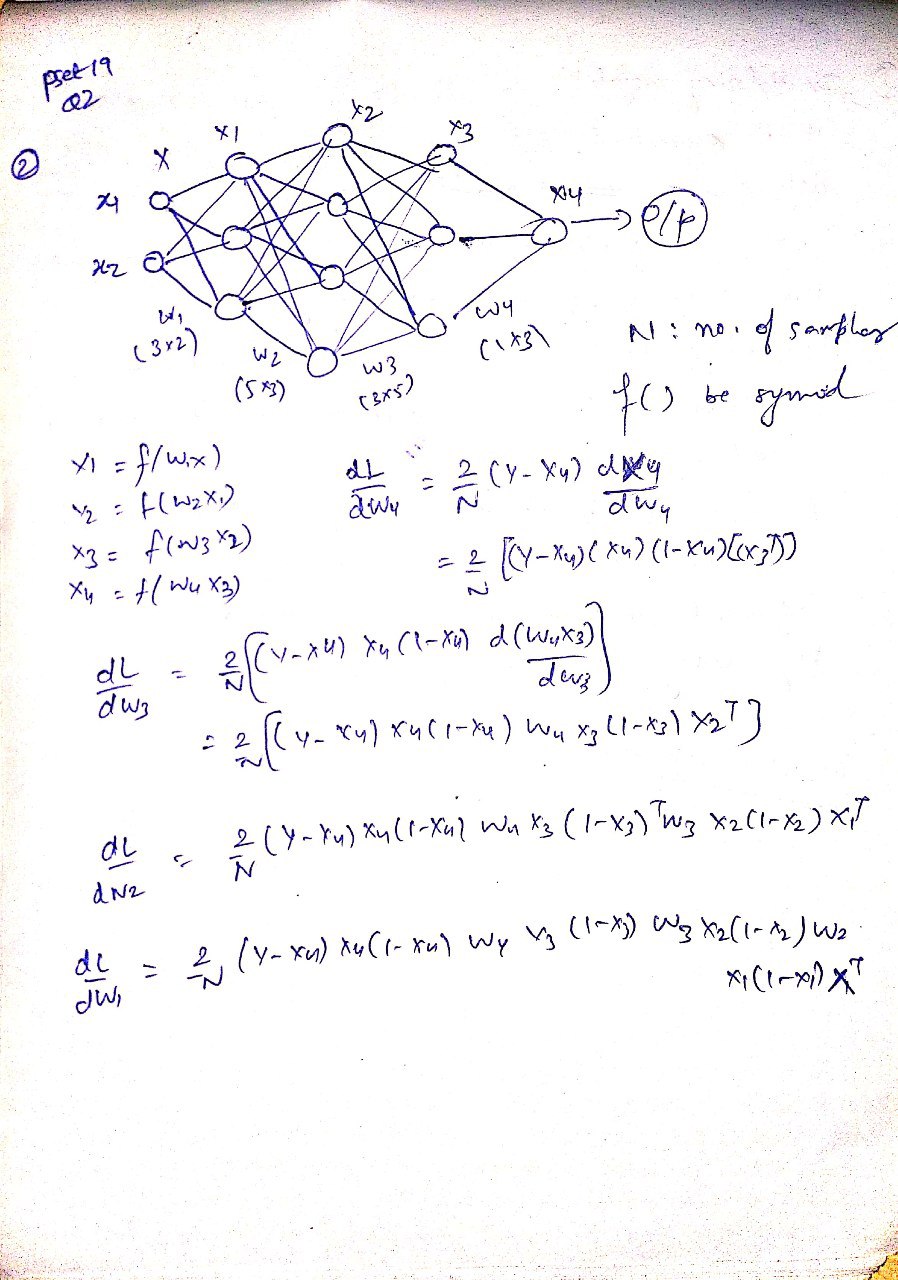 pset 19
Q2
②
X X1 X2 X3 X4
x1
x2
→ o/p
W1
(3x2)
W2
(5x3)
W3
(3x5)
W4
(1x3)
N : no. of samples
f() be
X1 = f(W1X)
X2 = f(W2X1)
X3 = f(W3X2)
X4 = f(W4X3)
dL/dW4 = 2/N (Y-X4) dX4/dW4
= 2/N [(Y-X4)(X4)(1-X4)[(X3T)]
dL/dW3 = 2/N [(Y-X4) X4(1-X4) d(W4X3)/dW3]
= 2/N [(Y-X4) X4(1-X4) W4 X3(1-X3) X2T]
dL/dW2 = 2/N (Y-X4) X4(1-X4) W4 X3(1-X3)T W3 X2(1-X2) X1T
dL/dW1 = 2/N (Y-X4) X4(1-X4) W4 X3(1-X3) W3 X2(1-X2) W2
X1(1-X1) XT